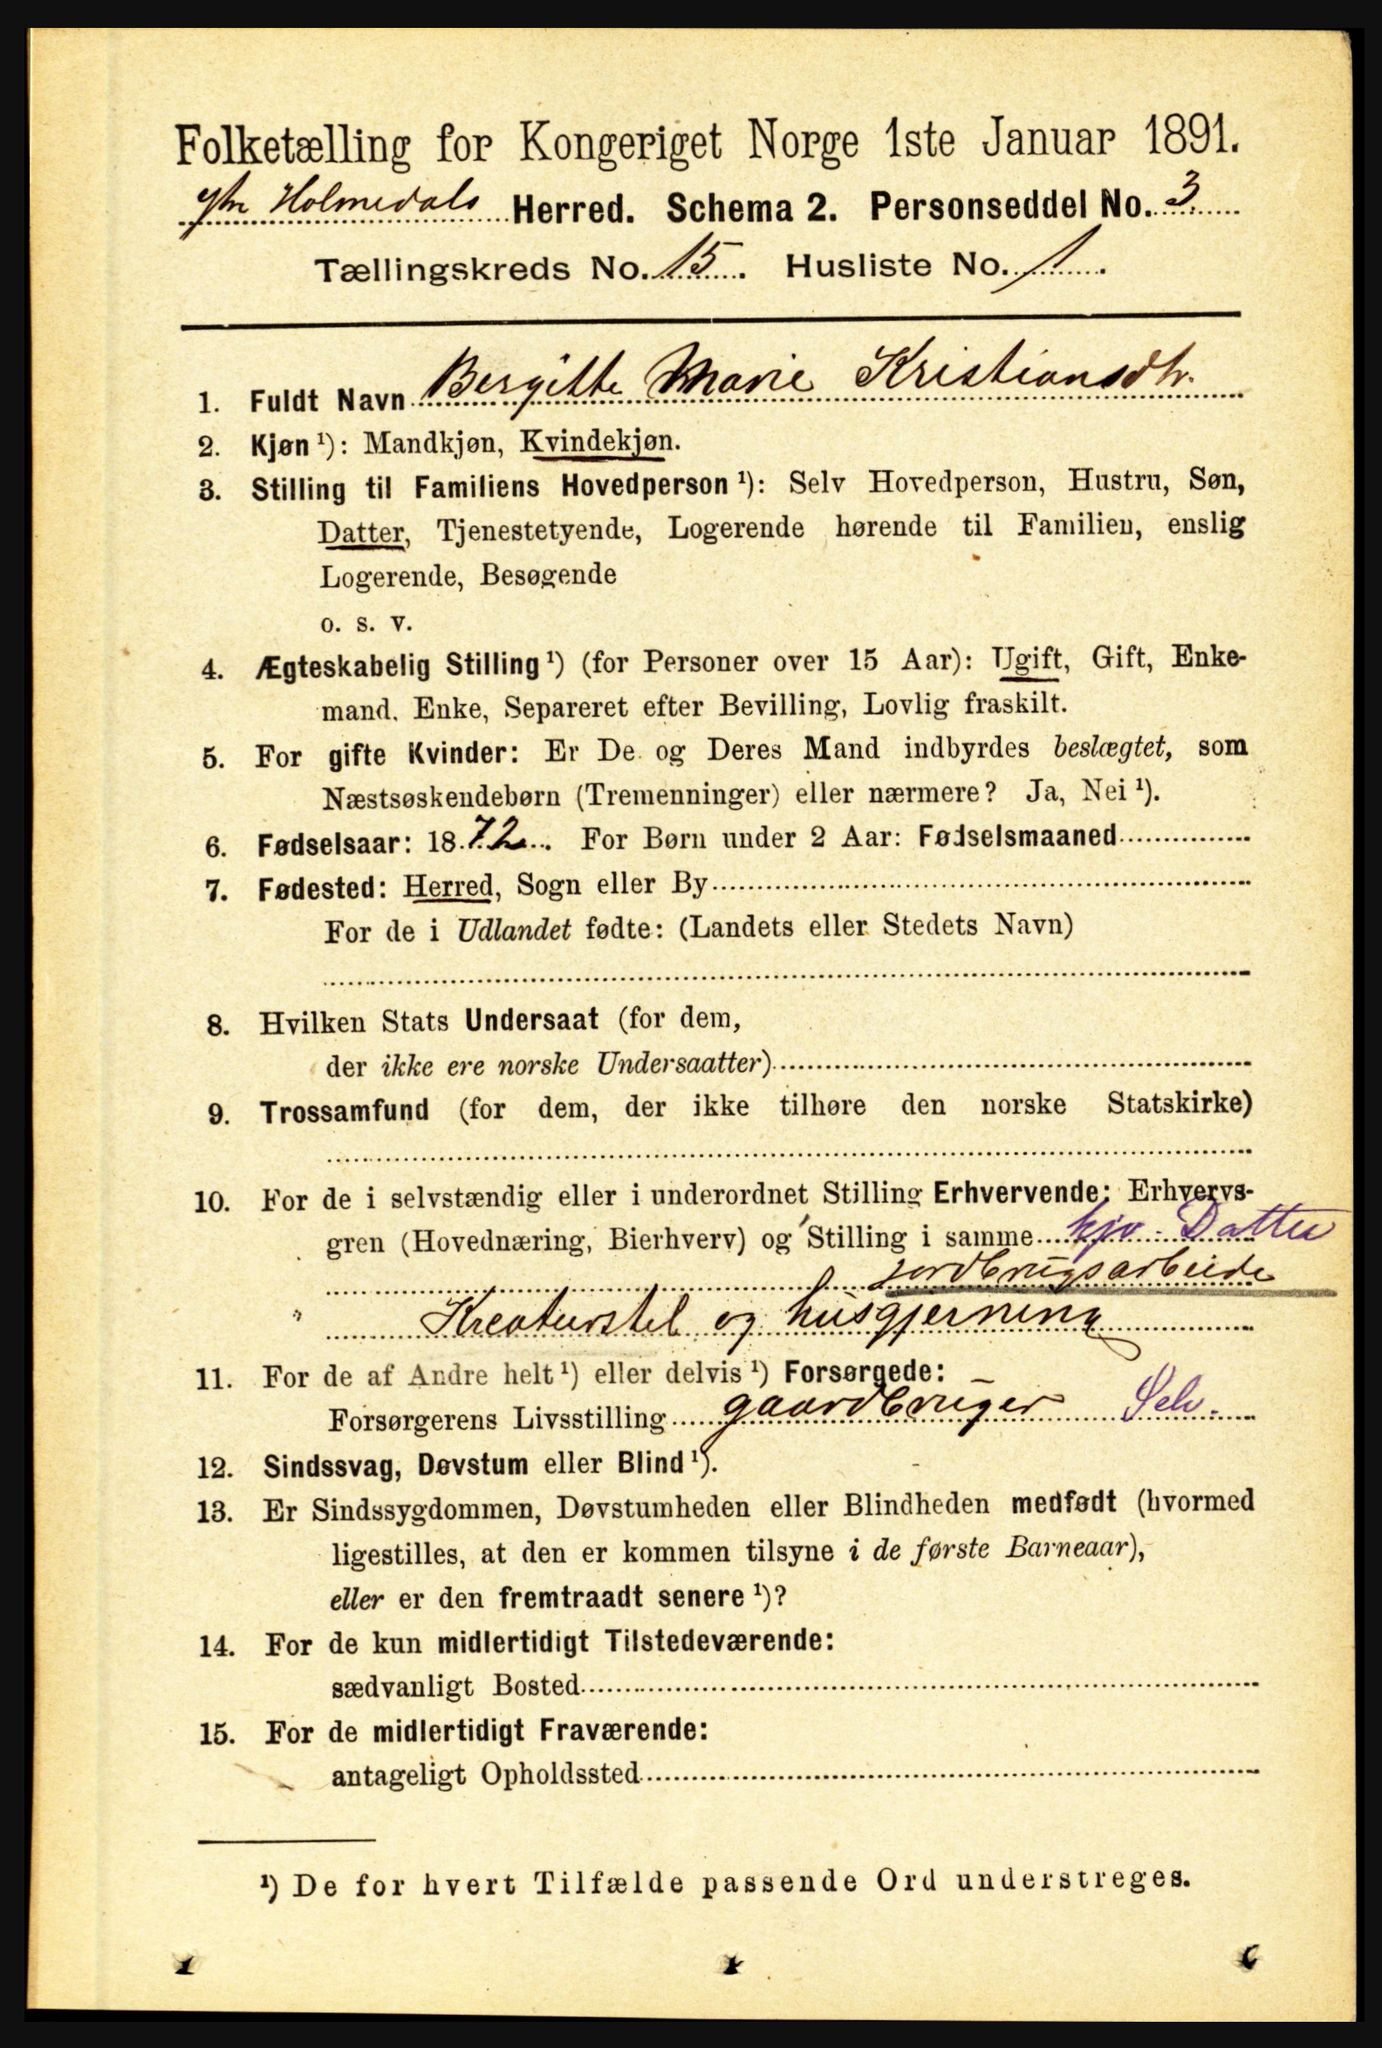 Folketælling for Kongeriget Norge 1ste Januar 1891.
Ytre Holmedals Herred. Schema 2. Personseddel No. 3
Tællingskreds No. 15. Husliste No. 1.
1. Fuldt Navn Bergitte Marie Kristiansdtr.
2. Kjøn ¹): Mandkjøn, Kvindekjøn.
3. Stilling til Familiens Hovedperson ¹): Selv Hovedperson, Hustru, Søn,
Datter, Tjenestetyende, Logerende hørende til Familien, enslig
Logerende, Besøgende
o. s. v.
4. Ægteskabelig Stilling ¹) (for Personer over 15 Aar): Ugift, Gift, Enke-
mand. Enke, Separeret efter Bevilling, Lovlig fraskilt.
5. For gifte Kvinder: Er De og Deres Mand indbyrdes beslægtet, som
Næstsøskendebørn (Tremenninger) eller nærmere? Ja, Nei ¹).
6. Fødselsaar: 1872. For Børn under 2 Aar: Fødselsmaaned
7. Fødested: Herred, Sogn eller By
For de i Udlandet fødte: (Landets eller Stedets Navn)
8. Hvilken Stats Undersaat (for dem,
der ikke ere norske Undersaatter)
9. Trossamfund (for dem, der ikke tilhøre den norske Statskirke)
10. For de i selvstændig eller i underordnet Stilling Erhvervende: Erhvervs-
gren (Hovednæring, Bierhverv) og Stilling i samme hjv. Datter
jordbrugsarbeide
" Kreaturstel og husgjerning
11. For de af Andre helt ¹) eller delvis ¹) Forsørgede:
Forsørgerens Livsstilling gaardbruger Selv.
12. Sindssvag, Døvstum eller Blind ¹).
13. Er Sindssygdommen, Døvstumheden eller Blindheden medfødt (hvormed
ligestilles, at den er kommen tilsyne i de første Barneaar),
eller er den fremtraadt senere ¹)?
14. For de kun midlertidigt Tilstedeværende:
sædvanligt Bosted
15. For de midlertidigt Fraværende:
antageligt Opholdssted
¹) De for hvert Tilfælde passende Ord understreges.